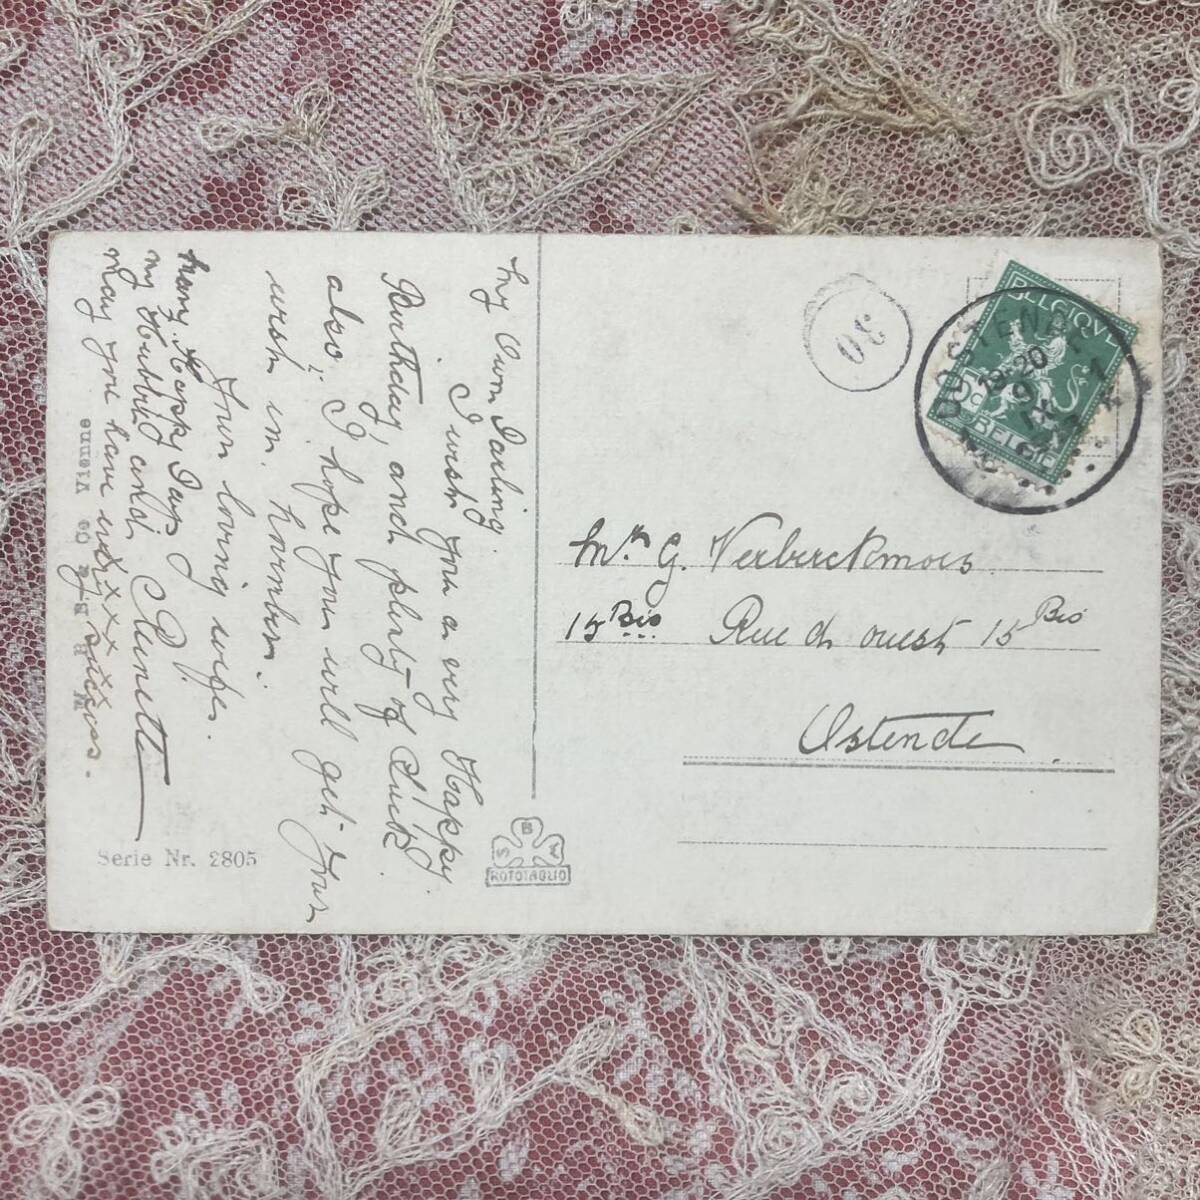 My Own Darling.
I wish you a very Happy
Birthday, and plenty of Luck
also, I hope you will get Your
wish in.
Your loving wife.
many Happy Days
my Hubby and
may you have
success.
B. K. W. I. Co Vienne
Serie Nr. 2805
S B A
ROTOTAGLIO
30
BELGIQUE
5c
BELGIË
OOSTENDE 1
19-20
9 IX
Mr. G. Verberckmoes
15 Bis Rue de ouest 15 Bis
Ostende